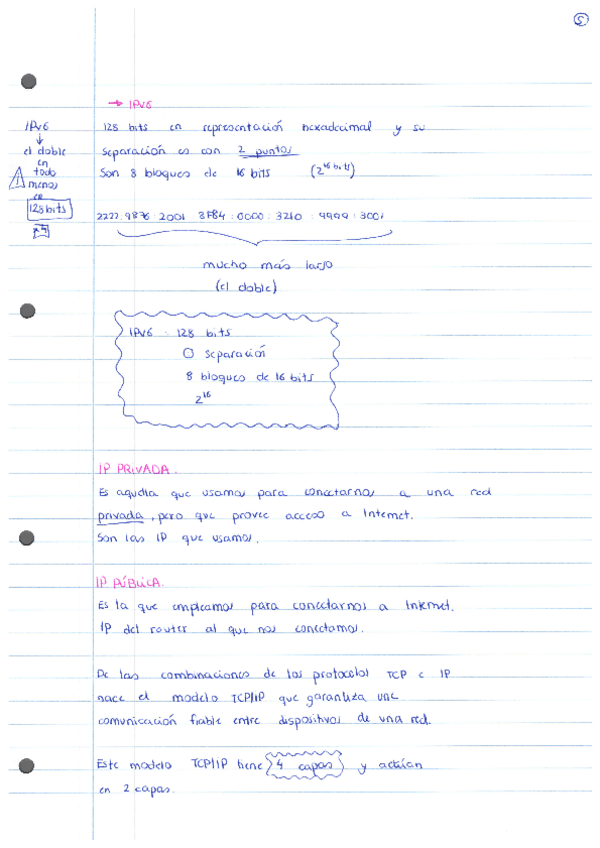 5
→ IPv6
IPv6
↓
el doble
en
todo
menos
en
128 bits
x4
128 bits en representación hexadecimal y su
separación es con 2 puntos
Son 8 bloques de 16 bits (2^16 bits)
2222:9876:2001 3F84:0000:3210:9999:3001
mucho más largo
(el doble)
IPv6 : 128 bits
separación
8 bloques de 16 bits
2^16
IP PRIVADA.
Es aquella que usamos para conectarnos a una red
privada, pero que provee acceso a Internet.
Son las IP que usamos.
IP PÚBLICA.
Es la que empleamos para conectarnos a Internet.
IP del router al que nos conectamos.
De las combinaciones de los protocolos TCP e IP
nace el modelo TCP/IP que garantiza una
comunicación fiable entre dispositivos de una red.
Este modelo TCP/IP tiene 4 capas y actúan
en 2 capas.